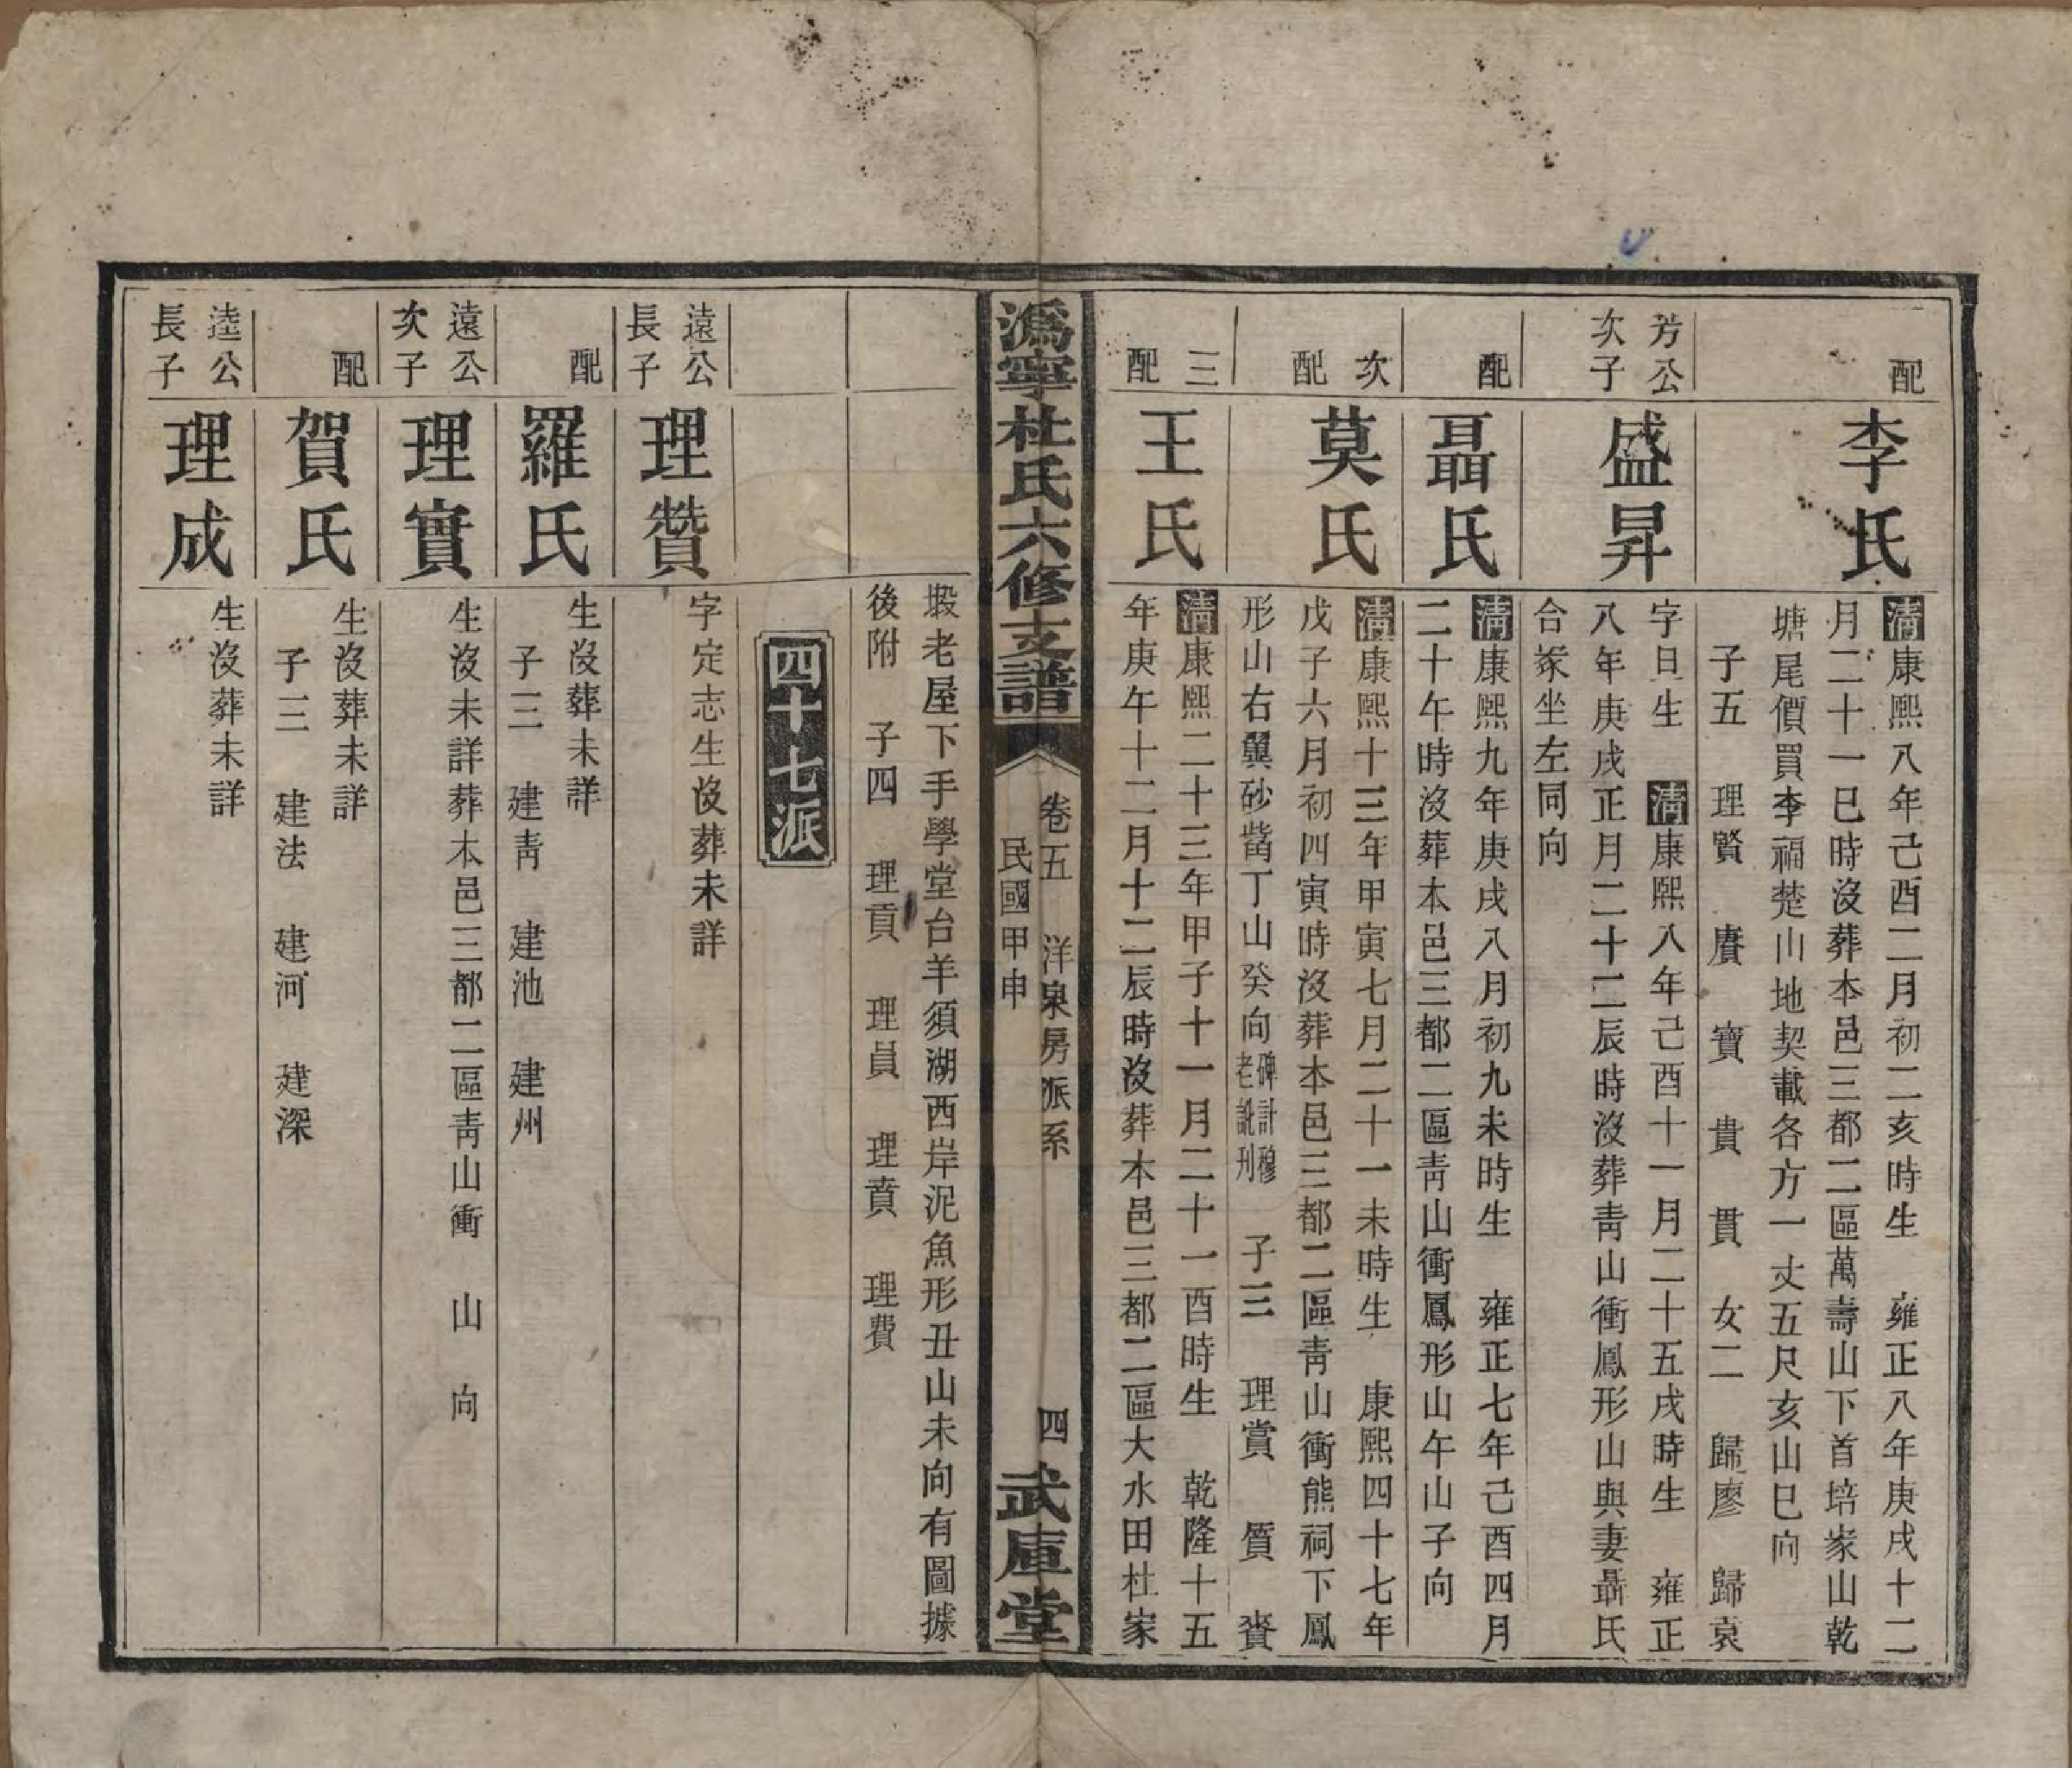 配
李氏
清康熙八年己酉二月初二亥時生　雍正八年庚戌十二
月二十一巳時沒葬本邑三都二區萬壽山下首培家山乾
塘尾價買李福楚山地契載各方一丈五尺亥山巳向
子五　理賢　賡　寶　貴　貫　女二　歸廖　歸袁
芳公
次子
盛昇
字日生　清康熙八年己酉十一月二十五戌時生　雍正
八年庚戌正月二十二辰時沒葬靑山衝鳳形山與妻聶氏
合冢坐左同向
配
聶氏
清康熙九年庚戌八月初九未時生　雍正七年己酉四月
二十午時沒葬本邑三都二區靑山衝鳳形山午山子向
次
配
莫氏
清康熙十三年甲寅七月二十一未時生　康熙四十七年
戊子六月初四寅時沒葬本邑三都二區靑山衝熊祠下鳳
形山右翼砂嘴丁山癸向碑計穆老訛刋　子三　理賞　質　賚
三
配
王氏
清康熙二十三年甲子十一月二十一酉時生　乾隆十五
年庚午十二月十二辰時沒葬本邑三都二區大水田杜家
溈寧杜氏六修支譜
卷五　洋泉房派系　四
民國甲申
武庫堂
塅老屋下手學堂台羊須湖西岸泥魚形丑山未向有圖據
後附　子四　理貢　理員　理賁　理費
四十七派
遠公
長子
理贊
字定志生沒葬未詳
配
羅氏
生沒葬未詳
子三　建靑　建池　建州
遠公
次子
理實
生沒未詳葬本邑三都二區靑山衝　山　向
配
賀氏
生沒葬未詳
子三　建法　建河　建深
逵公
長子
理成
生沒葬未詳